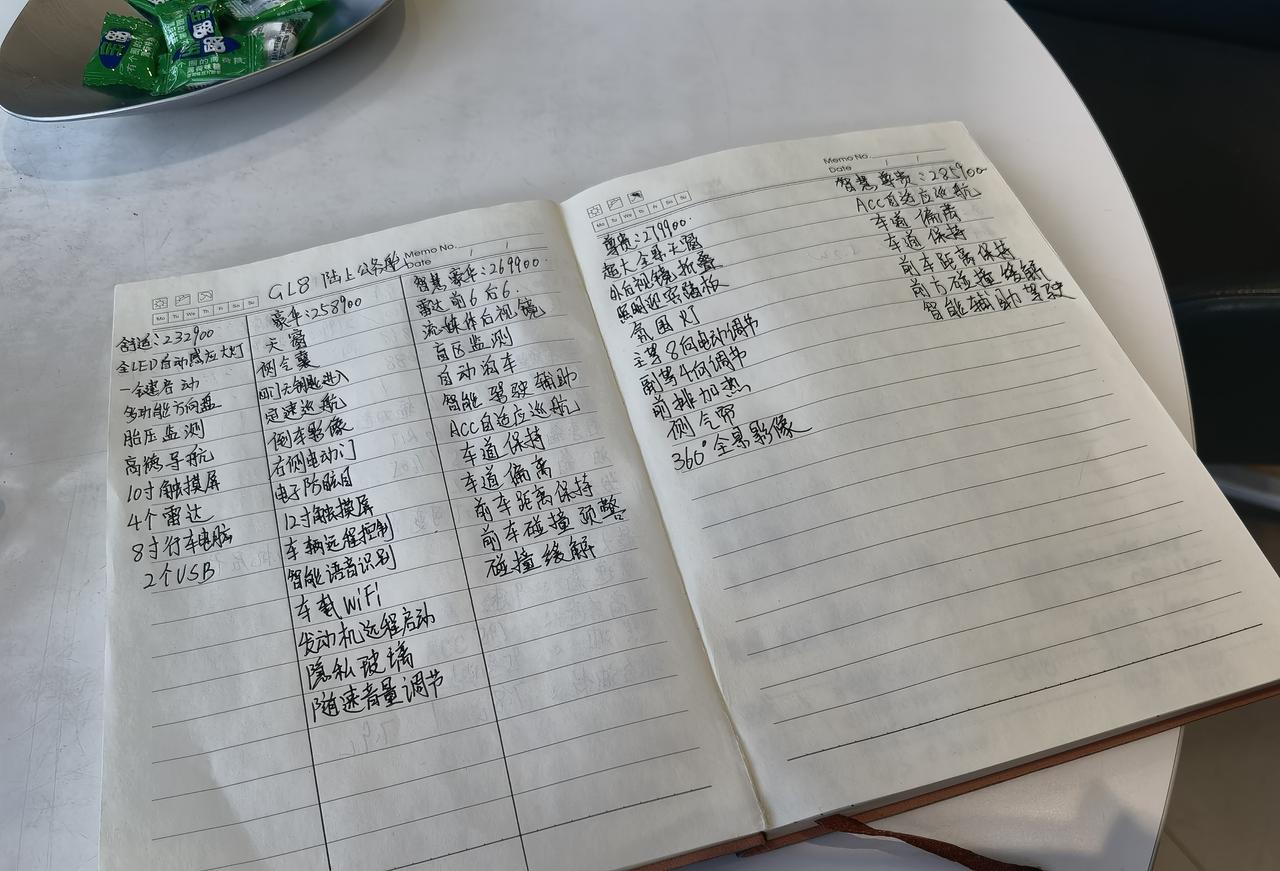 GL8 陆上公务舱
Memo No.
Date
Mo Tu We Th Fr Sa Su
舒适:232900
全LED自动感应大灯
一键启动
多功能方向盘
胎压监测
高德导航
10寸触摸屏
4个雷达
8寸行车电脑
2个USB
豪华:258900
天窗
侧气囊
前门无钥匙进入
定速巡航
倒车影像
右侧电动门
电子防眩目
12寸触摸屏
车辆远程控制
智能语音识别
车载WiFi
发动机远程启动
隐私玻璃
随速音量调节
智慧豪华:269900.
雷达前6后6.
流媒体后视镜
盲区监测
自动泊车
智能驾驶辅助
ACC自适应巡航
车道保持
车道偏离
前车距离保持
前车碰撞预警
碰撞缓解
Memo No.
Date
Mo Tu We Th Fr Sa Su
尊贵:279900.
超大全景天窗
外后视镜折叠
照明迎宾踏板
氛围灯
主驾8向电动调节
副驾4向调节
前排加热
侧气帘
360°全景影像
智慧尊贵:285900
ACC自适应巡航
车道偏离
车道保持
前车距离保持
前方碰撞缓解
智能辅助驾驶